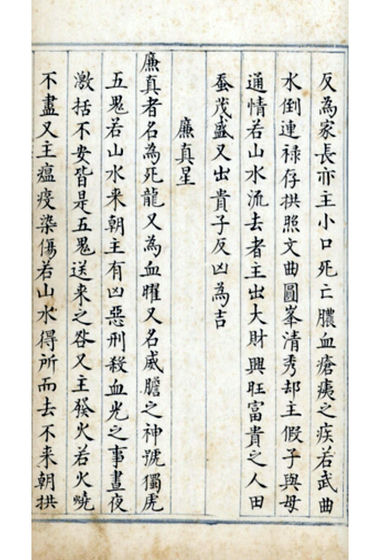 反為家長亦主小口死亡膿血瘡痍之疾若武曲
水倒連祿存拱照文曲圓峯清秀却主假子與母
通情若山水流去者主出大財興旺富貴之人田
蚕茂盛又出貴子反凶為吉
廉真星
廉真者名為死龍又為血曜又名威膽之神號獨虎
五鬼若山水来朝主有凶惡刑殺血光之事晝夜
激括不安皆是五鬼送来之咎又主發火若火燒
不盡又主瘟疫染傷若山水得所而去不来朝拱